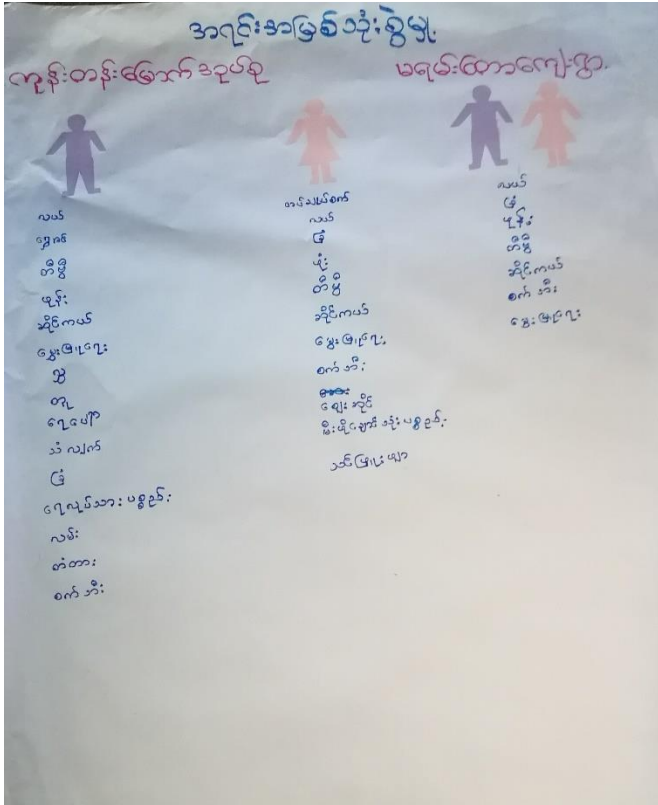 အရင်းအမြစ်သုံးစွဲမှု
ကုန်းတန်းမြောက်ဒုပ်စု
မရမ်းတောကျေးရွာ
လယ်
တီဗွီ
ဖုန်း
ဆိုင်ကယ်
မွေးမြူရေး
သံလျက်
ခြံ
ရေလုပ်သားပစ္စည်း
လမ်း
တံတား
စက်ဘီး
လယ်
ခြံ
ဖုံး
တီဗွီ
ဆိုင်ကယ်
မွေးမြူရေး
စက်ဘီး
ဈေးဆိုင်
မီးဖိုချောင်သုံးပစ္စည်း
သင်ဖြူးဖျာ
လယ်
ခြံ
ဖုန်း
တီဗွီ
ဆိုင်ကယ်
စက်ဘီး
မွေးမြူရေး